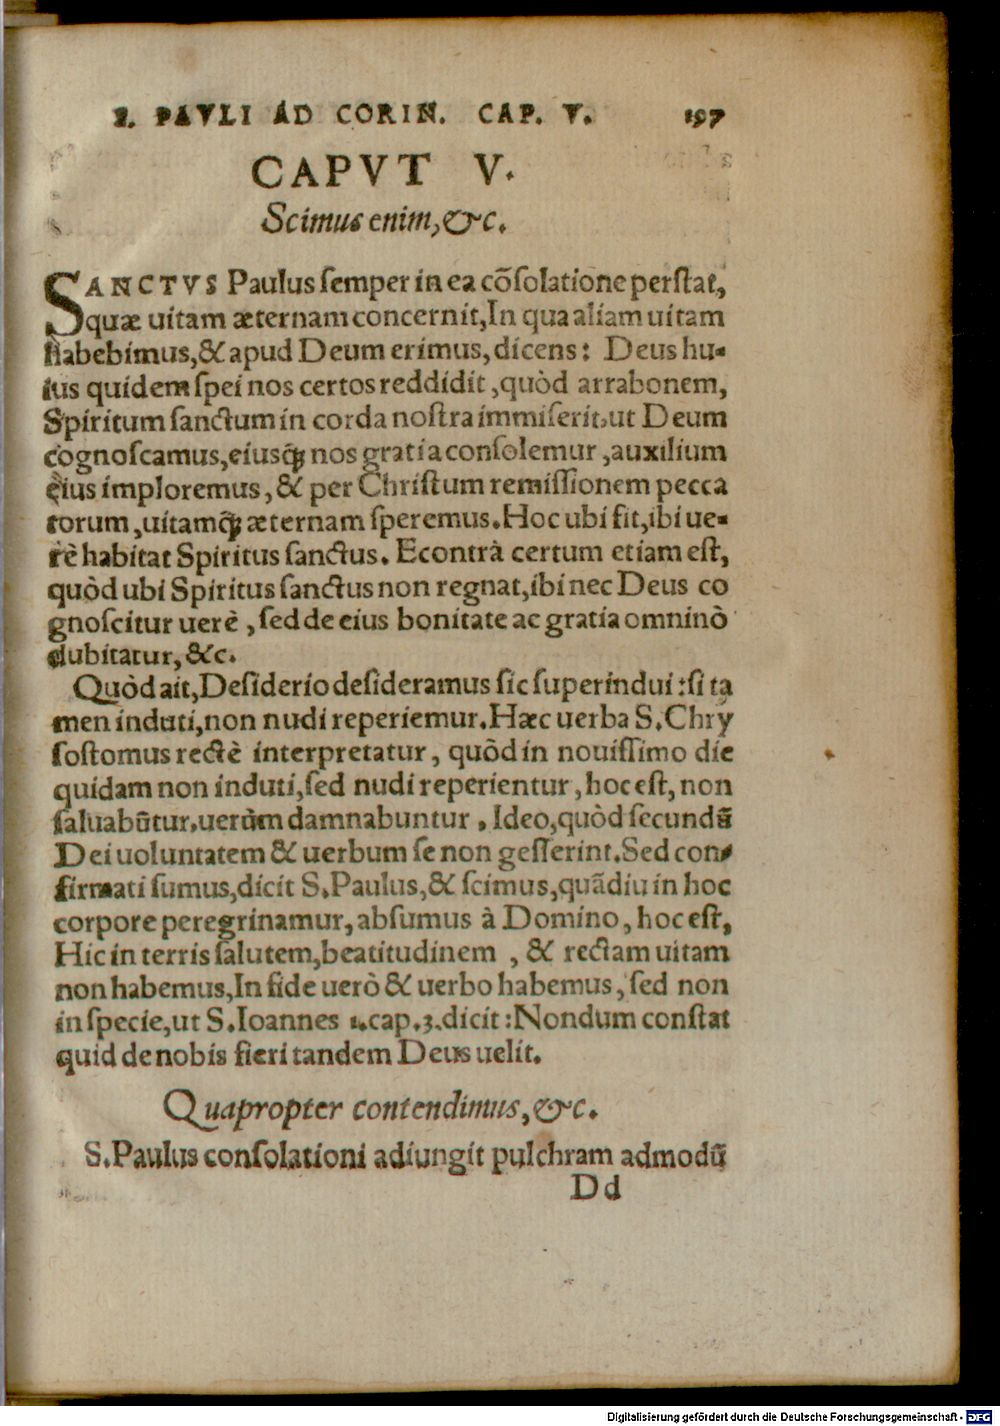 2. PAVLI AD CORIN. CAP. V. 197
CAPVT V.
Scimus enim, &c.
SANCTVS Paulus semper in ea cōsolatione perstat,
quæ uitam æternam concernit, In qua aliam uitam
habebimus, & apud Deum erimus, dicens: Deus hu-
ius quidem spei nos certos reddidit, quòd arrabonem,
Spiritum sanctum in corda nostra immiserit, ut Deum
cognoscamus, eiusq́; nos gratia consolemur, auxilium
eius imploremus, & per Christum remissionem pecca
torum, uitamq́; æternam speremus. Hoc ubi fit, ibi ue-
rè habitat Spiritus sanctus. Econtrà certum etiam est,
quòd ubi Spiritus sanctus non regnat, ibi nec Deus co
gnoscitur uerè, sed de eius bonitate ac gratia omninò
dubitatur, &c.
Quòd ait, Desiderio desideramus sic superindui: si ta
men induti, non nudi reperiemur. Hæc uerba S. Chry
sostomus rectè interpretatur, quòd in nouissimo die
quidam non induti, sed nudi reperientur, hoc est, non
saluabūtur, uerùm damnabuntur. Ideo, quòd secundū
Dei uoluntatem & uerbum se non gesserint. Sed con-
firmati sumus, dicit S. Paulus, & scimus, quādiu in hoc
corpore peregrinamur, absumus à Domino, hoc est,
Hic in terris salutem, beatitudinem, & rectam uitam
non habemus, In fide uerò & uerbo habemus, sed non
in specie, ut S. Ioannes 1. cap. 3. dicit: Nondum constat
quid de nobis fieri tandem Deus uelit.
Quapropter contendimus, &c.
S. Paulus consolationi adiungit pulchram admodū
Dd
Digitalisierung gefördert durch die Deutsche Forschungsgemeinschaft - DFG